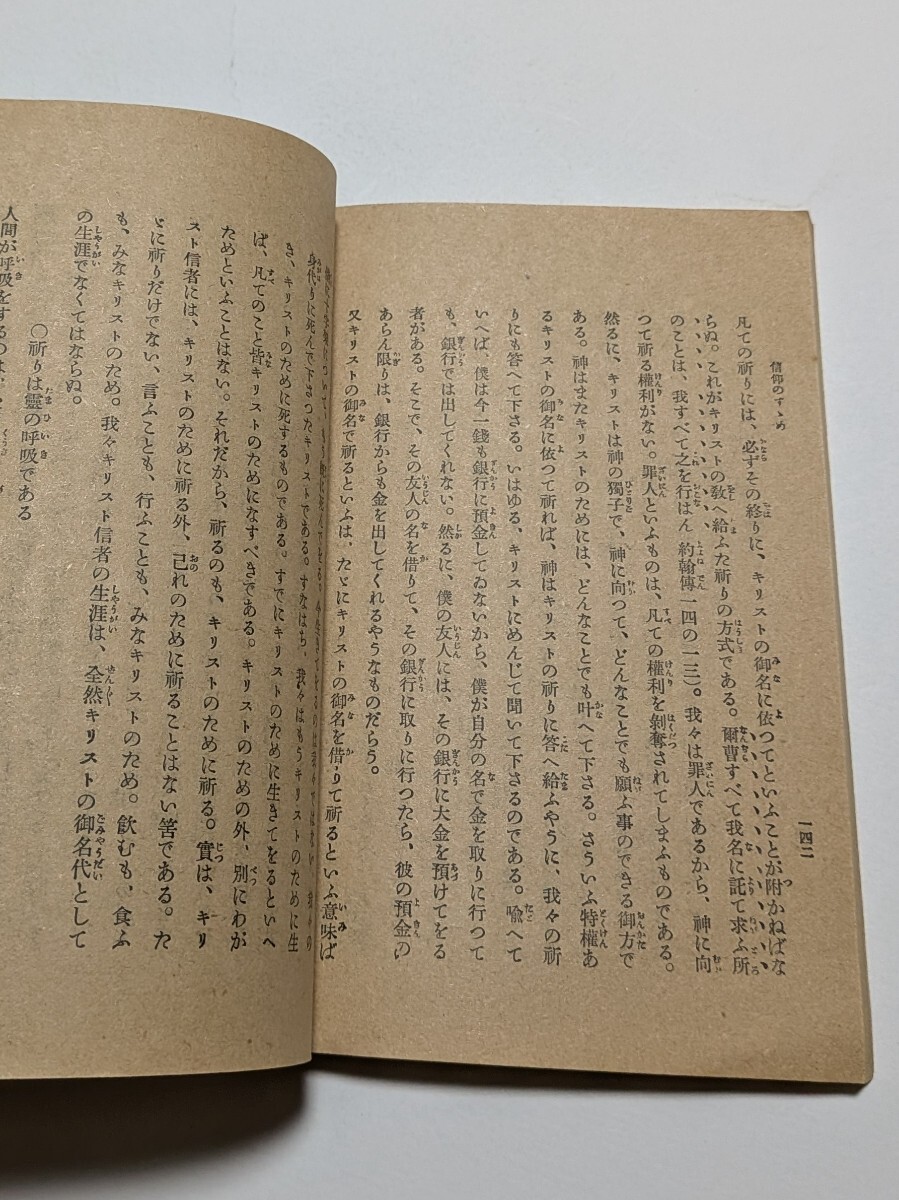 信仰のすゝめ
一四二
凡ての祈りには、必ずその終りに、キリストの御名に依つてといふことが附かねばな
らぬ。これがキリストの敎へ給ふた祈りの方式である。爾曹すべて我名に託て求ふ所
のことは、我すべて之を行はん（約翰傳一四の一三）。我々は罪人であるから、神に向
つて祈る權利がない。罪人といふものは、凡ての權利を剝奪されてしまふものである。
然るに、キリストは神の獨子で、神に向つて、どんなことでも願ふ事のできる御方で
ある。神はまたキリストのためには、どんなことでも叶へて下さる。さういふ特權あ
るキリストの御名に依つて祈れば、神はキリストの祈りに答へ給ふやうに、我々の祈
りにも答へて下さる。いはゆる、キリストにめんじて聞いて下さるのである。喩へて
いへば、僕は今一錢も銀行に預金してゐないから、僕が自分の名で金を取りに行つて
も、銀行では出してくれない。然るに、僕の友人には、その銀行に大金を預けてをる
者がある。そこで、その友人の名を借りて、その銀行に取りに行つたら、彼の預金の
あらん限りは、銀行からも金を出してくれるやうなものだらう。
又キリストの御名で祈るといふは、たゞにキリストの御名を借りて祈るといふ意味ば
身代りに死んで下さつたキリストである。すなはち、我々はもうキリストのために生
き、キリストのために死するものである。すでにキリストのために生きてをるといへ
ば、凡てのこと皆キリストのためになすべきである。キリストのための外、別にわが
ためといふことはない。それだから、祈るのも、キリストのために祈る。實は、キリ
スト信者には、キリストのために祈る外、己れのために祈ることはない筈である。た
ゞに祈りだけでない、言ふことも、行ふことも、みなキリストのため。飮むも、食ふ
も、みなキリストのため。我々キリスト信者の生涯は、全然キリストの御名代として
の生涯でなくてはならぬ。
○祈りは靈の呼吸である
人間が呼吸をするのは、